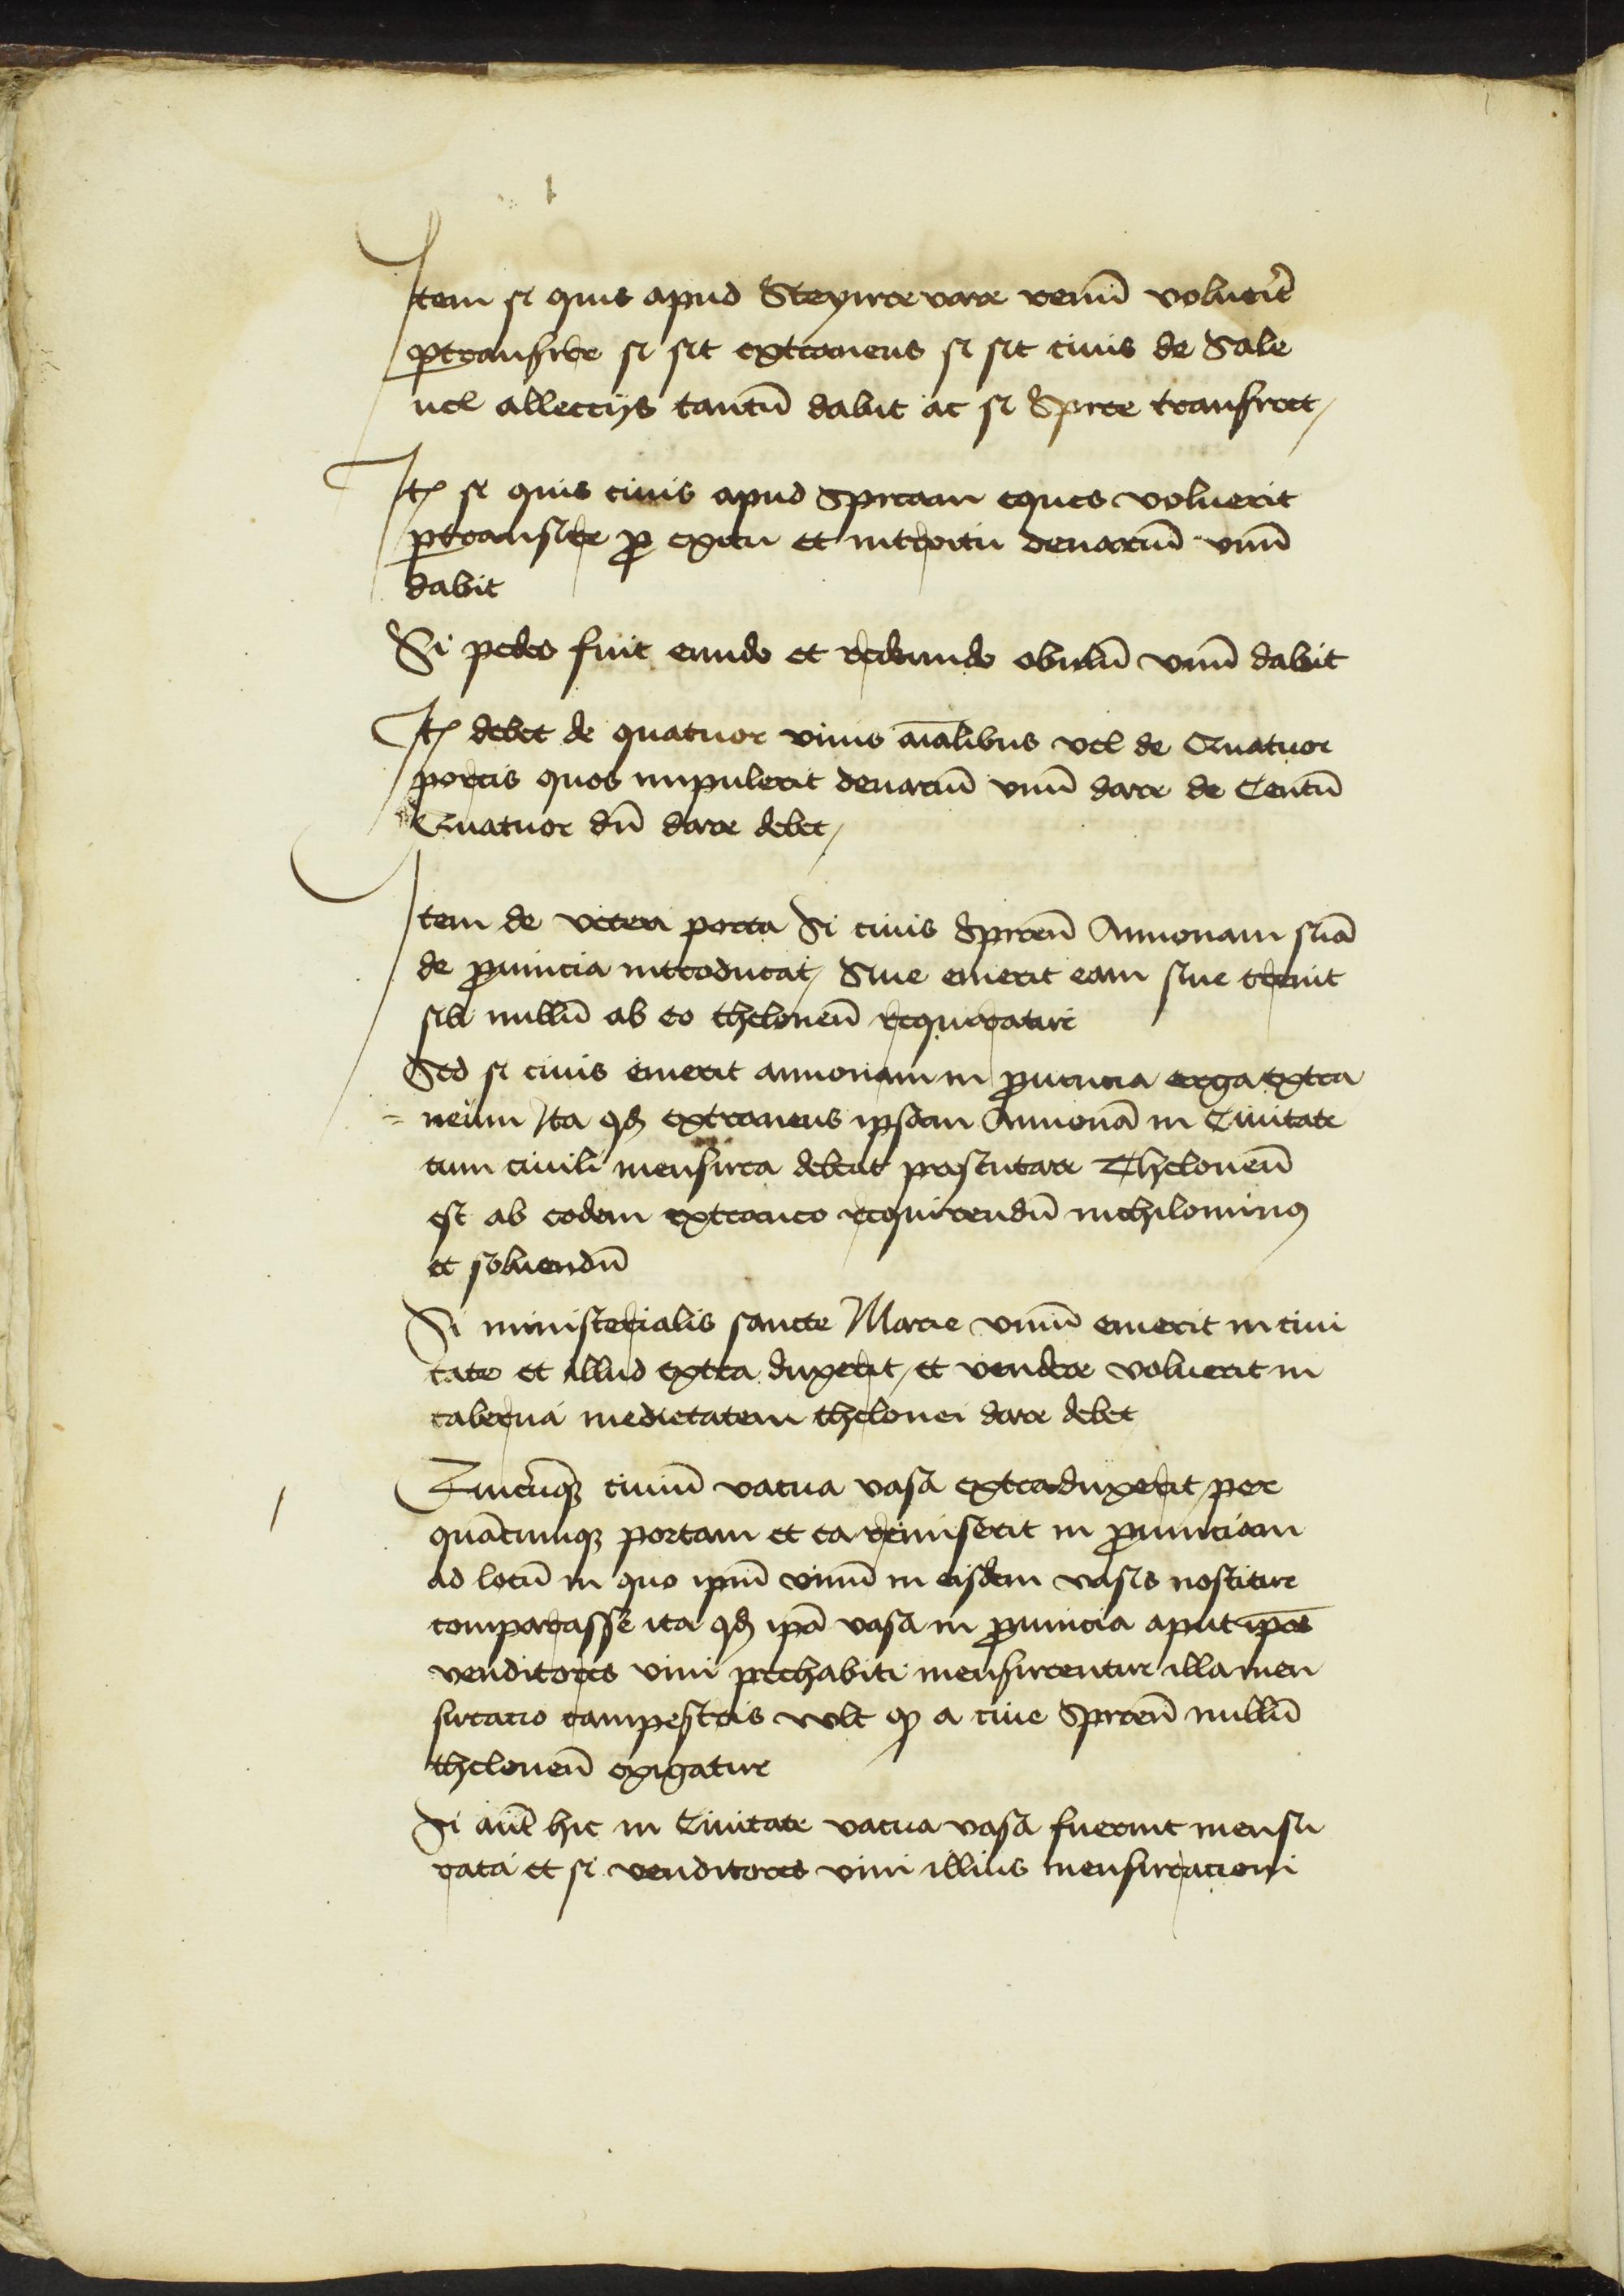 Item si quis apud Steynre vare renum voluerit
ptransire si sit extraneus si sit ciuis de Sale
uel alleccijs tantū dabit ac si Spire transiret
Itē si quis ciuis apud Spiram eques voluerit
ptransire p exitu et introitu denariū vnū
dabit
Si pedes fuit eundo et redeundo obulū vnū dabit
Itē debet de quatuor viuis aīalibus vel de Quatuor
porcis quos impulerit denariū vnū dare de Centū
Quatuor dñ dare debet
Item de veteri porta Si ciuis Spireñ Annonam suā
de prouincia introducat, Siue emerit eam siue creuit
sibi nullū ab eo theloneū requiratur
Sed si ciuis emerit annonam in prouincia erga extra
= neum Ita qd extraneus ipsam Annonā in Ciuitate
cum ciuili mensura debeat presentare Theloneū
est ab eodem extraneo requirendū nichilominus
et soluendū
Si ministerialis sancte Marie vinū emerit in ciui
tate et illud extra duxerit, et vendere voluerit in
taberna medietatem thelonei dare debet
Quicūqz ciuiū vacua vasa extraduxerit per
quācumqz portam et ea remiserit in prouinciam
ad locū in quo ipm̄ vinū in eisdem vasis noscitur
comparasse ita qd ipa vasa in prouincia aput ipos
venditores vini prehabiti mensurentur illa men
suracio campestris vult q a ciue Spireñ nullū
theloneū exigatur
Si aūt hic in Ciuitate vacua vasa fuerint mensu
rata et si venditores vini illius mensuracioni